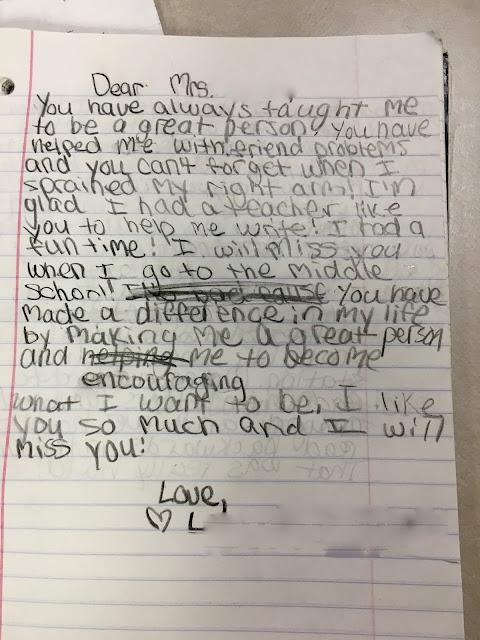 Dear Mrs.
You have always taught me
to be a great person! You have
helped me with friend problems
and you can't forget when I
sprained my right arm! I'm
glad I had a teacher like
you to help me write! I had a
fun time! I will miss you
when I go to the middle
school! You have
made a difference in my life
by making me a great person
and helping me to become
encouraging
what I want to be. I like
you so much and I will
miss you!
Love,
♡ L